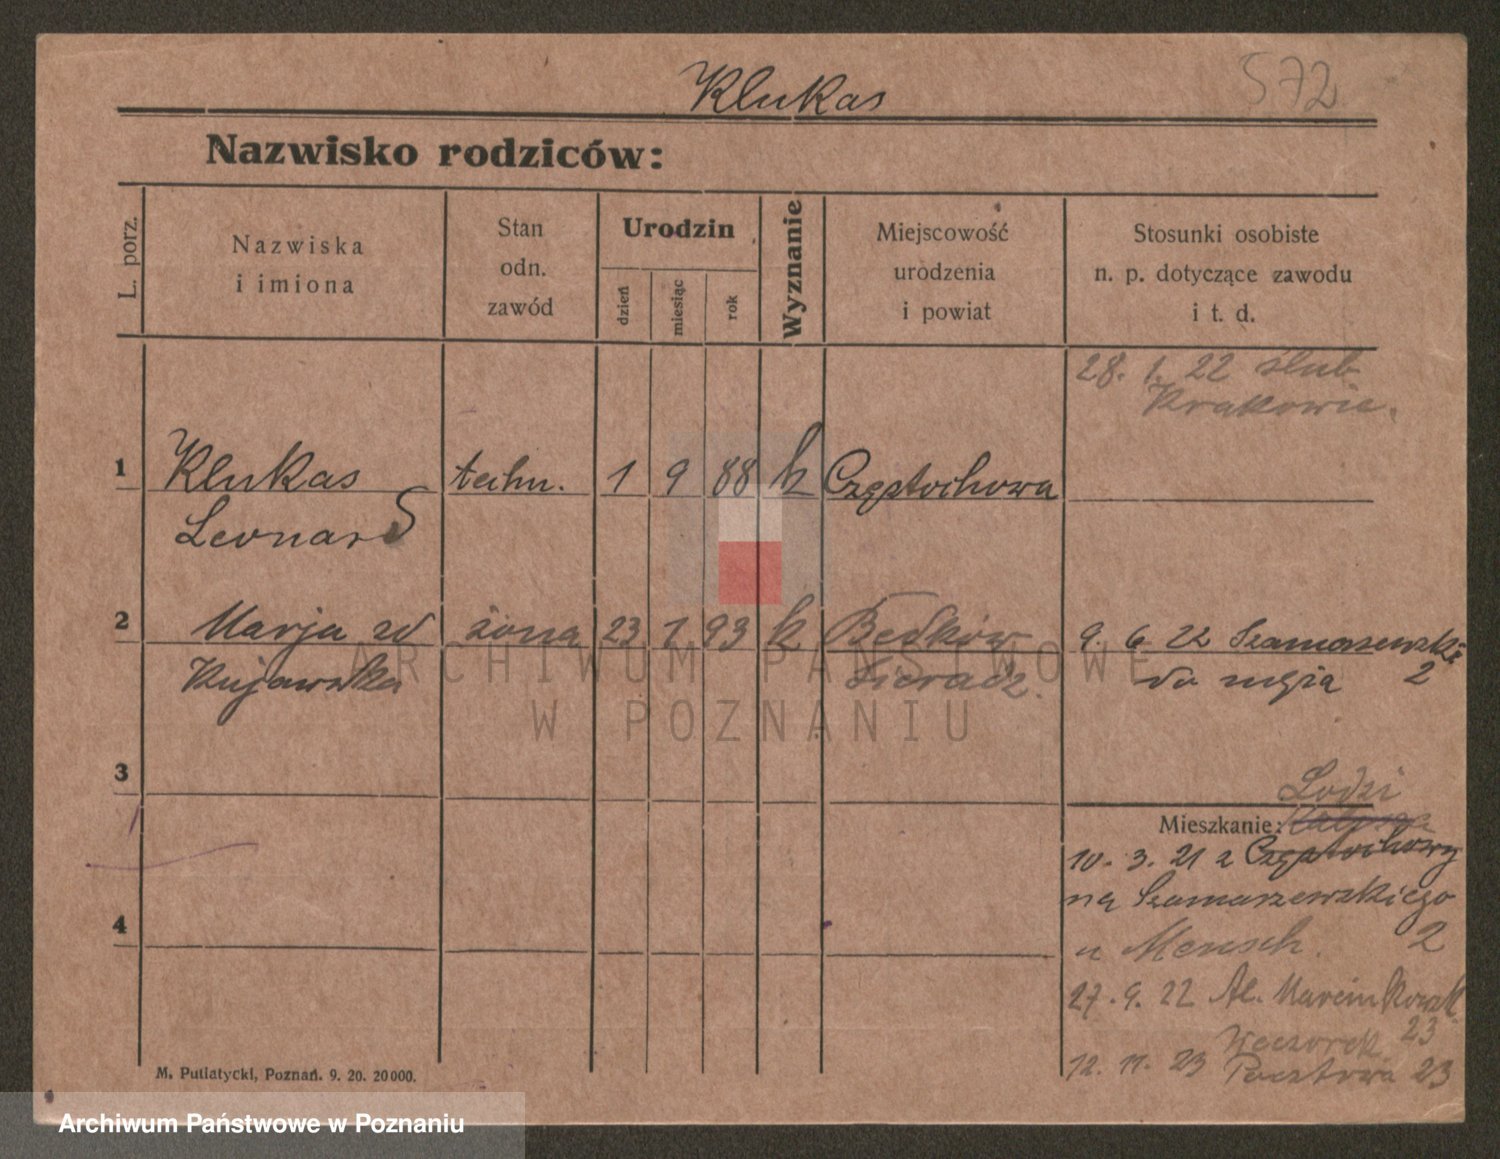 Klukas
572
Nazwisko rodziców:
L. porz.
Nazwiska
i imiona
Stan
odn.
zawód
Urodzin
dzień
miesiąc
rok
Wyznanie
Miejscowość
urodzenia
i powiat
Stosunki osobiste
n. p. dotyczące zawodu
i t. d.
28. 1. 22 ślub
Krakowie.
1 Klukas techn. 1 9 88 k Częstochowa
Leonard
2 Marja zd żona 23 1 93 k Bedków 9. 6 22 Szamarzewski
Kujawska Sieradz. do męża 2
3
Lodzi
Mieszkanie:
10. 3. 21 z Częstochowy
na Szamarzewskiego
4
u Mensch. 2
27. 9. 22 Al. Marcinkowsk.
23
Weczorek
12. 11. 23 Pocztowa 23
M. Putiatycki, Poznań. 9. 20. 20000.
ARCHIWUM PAŃSTWOWE
W POZNANIU
Archiwum Państwowe w Poznaniu